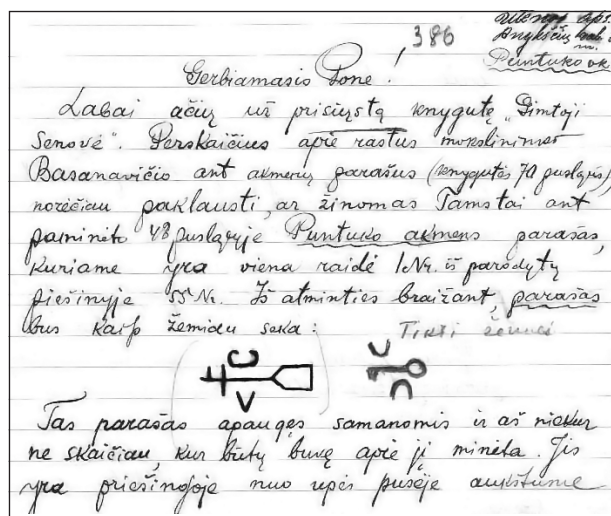 386
Utenos aps.
Anykščių
Puntuko vk
Gerbiamasis Pone!
Labai ačiū už prisiųstą knygutę „Gimtoji
Senovė". Perskaičius apie rastus mokslininko
Basanavičio ant akmenų parašus (knygutės 70 puslapis)
norėčiau paklausti, ar žinomas Tamstai ant
paminėto 48 puslapyje Puntuko akmens parašas,
kuriame yra viena raidė 1 Nr. iš parodytų
piešinyje 55 Nr. Iš atminties braižant, parašas
bus kaip žemiau seka:
Tas parašas apaugęs samanomis ir aš niekur
ne skaičiau, kur būtų buvę apie jį minėta. Jis
yra priešingoje nuo upės pusėje aukštume